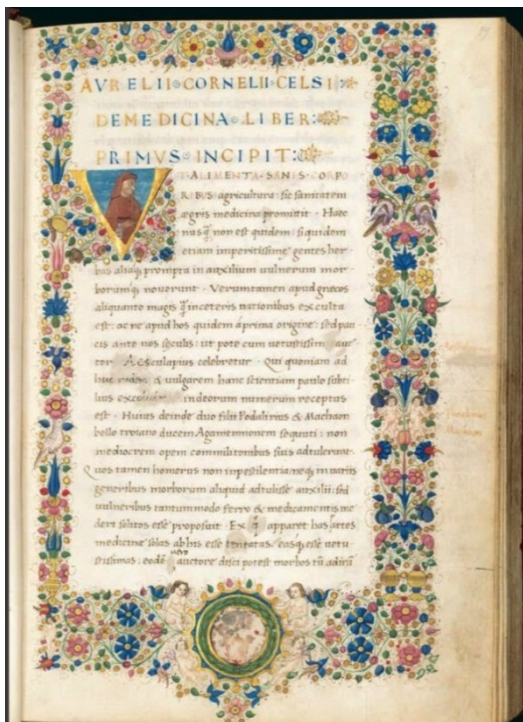 AVRELII CORNELII CELSI
DEMEDICINA LIBER:
PRIMVS INCIPIT:
VT ALIMENTA SANIS CORPO
RIBVS agricultura: sic sanitatem
ægris medicina promittit. Haec
nusq̃ non est quidem: siquidem
etiam imperitissime gentes her
bas aliaq̨ prompta in auxilium vulnerum mor
borumq̨ noverunt. Verumtamen apud grecos
aliquanto magis q̃ inceteris nationibus exculta
est: ac ne apud hos quidem á prima origine: sed pau
cis ante nos sęculis: ut pote cum vetustissimus auc
tor Aesculapius celebretur. Qui quoniam ad
huc rudem & vulgarem hanc scientiam paulo subti
lius excoluit indeorum numerum receptus
est. Huius deinde duo filii Podalirius & Machaon
bello troiano ducem Agamemnonem sequuti: non
mediocrem opem commilitonibus suis adtulerunt.
Quos tamen homerus non inpestilentia neq̨ in variis
generibus morborum aliquid adtulisse auxilii: sed
vulneribus tantummodo ferro & medicamentis me
deri solitos esse proposuit. Ex q̃ apparet has artes
medicinę solas ab his esse tentatas. easq̨ esse vetu
stissimas. eodē vero auctore disci potest morbos tū ad irā